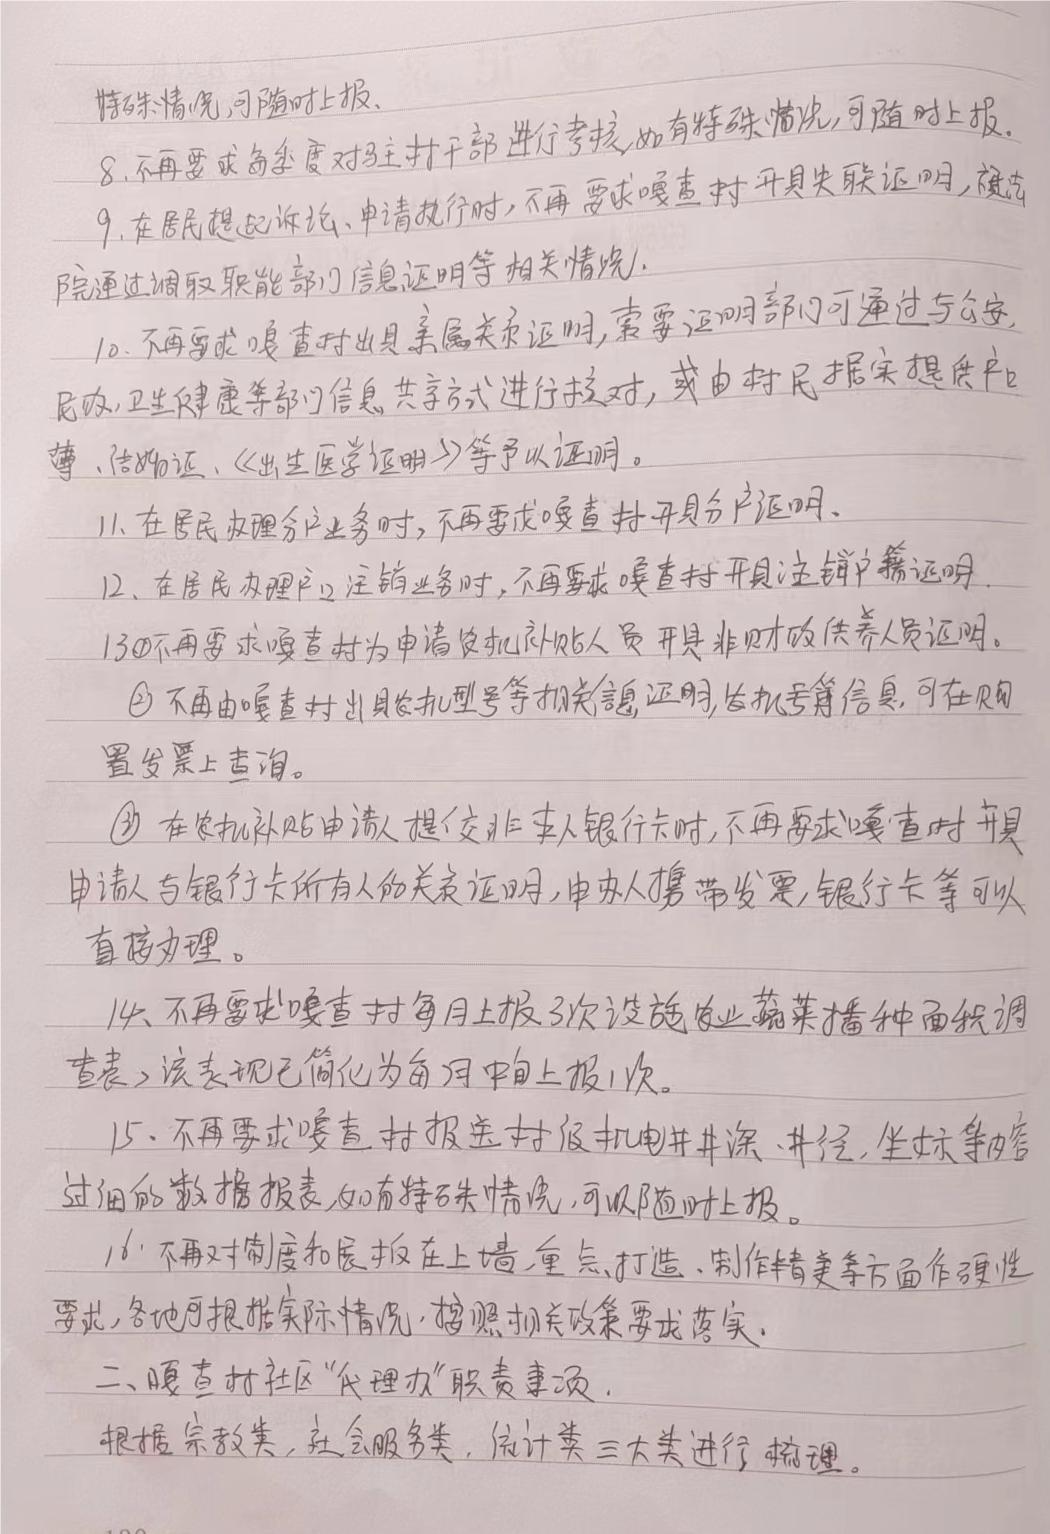 特殊情况,可随时上报、
8、不再要求每季度对驻村干部进行考核,如有特殊情况,可随时上报.
9、在居民提起诉讼、申请执行时,不再要求嘎查村开具失联证明,法
院通过调取职能部门信息证明等相关情况.
10、不再要求嘎查村出具亲属关系证明,索要证明部门可通过与公安、
民政,卫生健康等部门信息共享方式进行核对,或由村民据实提供户口
薄、结婚证、《出生医学证明》等予以证明。
11、在居民办理分户业务时,不再要求嘎查村开具分户证明、
12、在居民办理户口注销业务时,不再要求嘎查村开具注销户籍证明.
13①不再要求嘎查村为申请农机补贴人员开具非财政供养人员证明。
②不再由嘎查村出具农机型号等相关信息证明,农机号等信息,可在购
置发票上查询。
③在农机补贴申请人提交非本人银行卡时,不再要求嘎查村开具
申请人与银行卡所有人的关系证明,申办人携带发票,银行卡等可以
直接办理。
14、不再要求嘎查村每月上报3次设施农业蔬菜播种面积调
查表,该表现已简化为每月中旬上报1次。
15、不再要求嘎查村报送村级机电井井深、井径,坐标等内容
过细的数据报表,如有特殊情况,可以随时上报。
16.不再对制度和展板在上墙,重点打造、制作精美等方面作硬性
要求,各地可根据实际情况,按照相关政策要求落实.
二、嘎查村社区"代理办"职责事项.
根据宗教类,社会服务类,统计类三大类进行梳理。